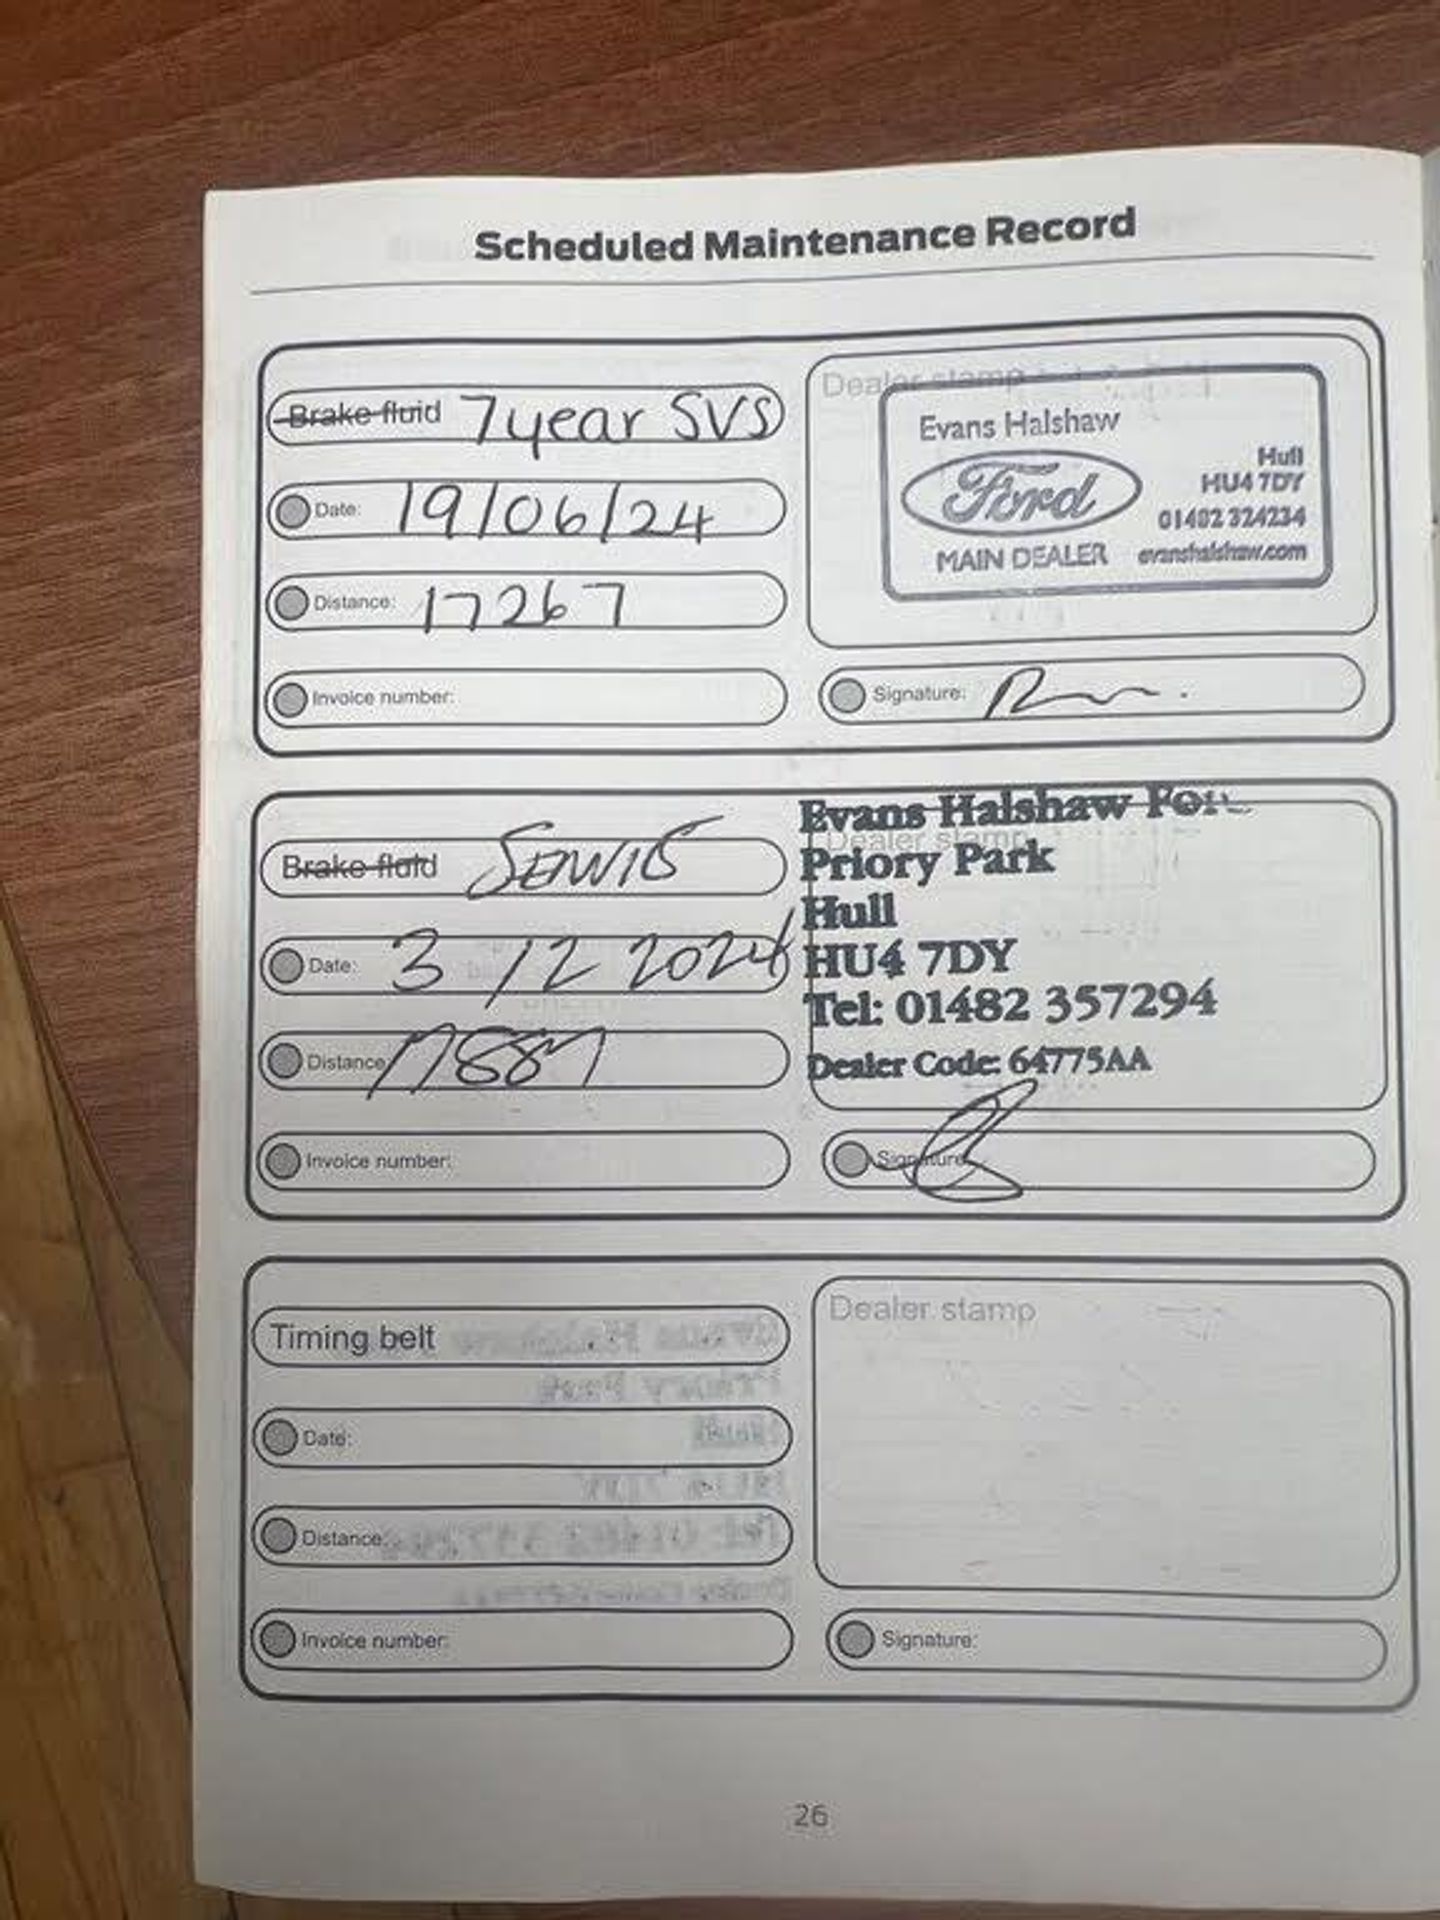 Scheduled Maintenance Record
Brake fluid 7 year SVS
Date: 19/06/24
Distance: 17267
Invoice number:
Dealer stamp
Evans Halshaw
Ford
MAIN DEALER
Hull
HU4 7DY
01482 324234
evanshalshaw.com
Signature:
Brake fluid
Date: 3/12 2024
Distance 17887
Invoice number:
Dealer stamp
Evans Halshaw
Priory Park
Hull
HU4 7DY
Tel: 01482 357294
Dealer Code: 64775AA
Signature
Timing belt
Date:
Distance:
Invoice number:
Dealer stamp
Signature:
26